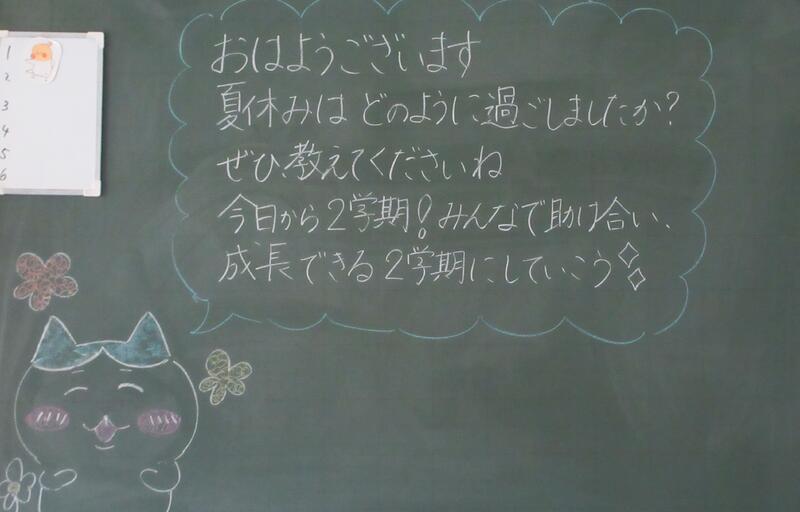 おはようございます
夏休みは どのように過ごしましたか?
ぜひ教えてくださいね
今日から2学期!みんなで助け合い、
成長できる2学期にしていこう
1
2
3
4
5
6